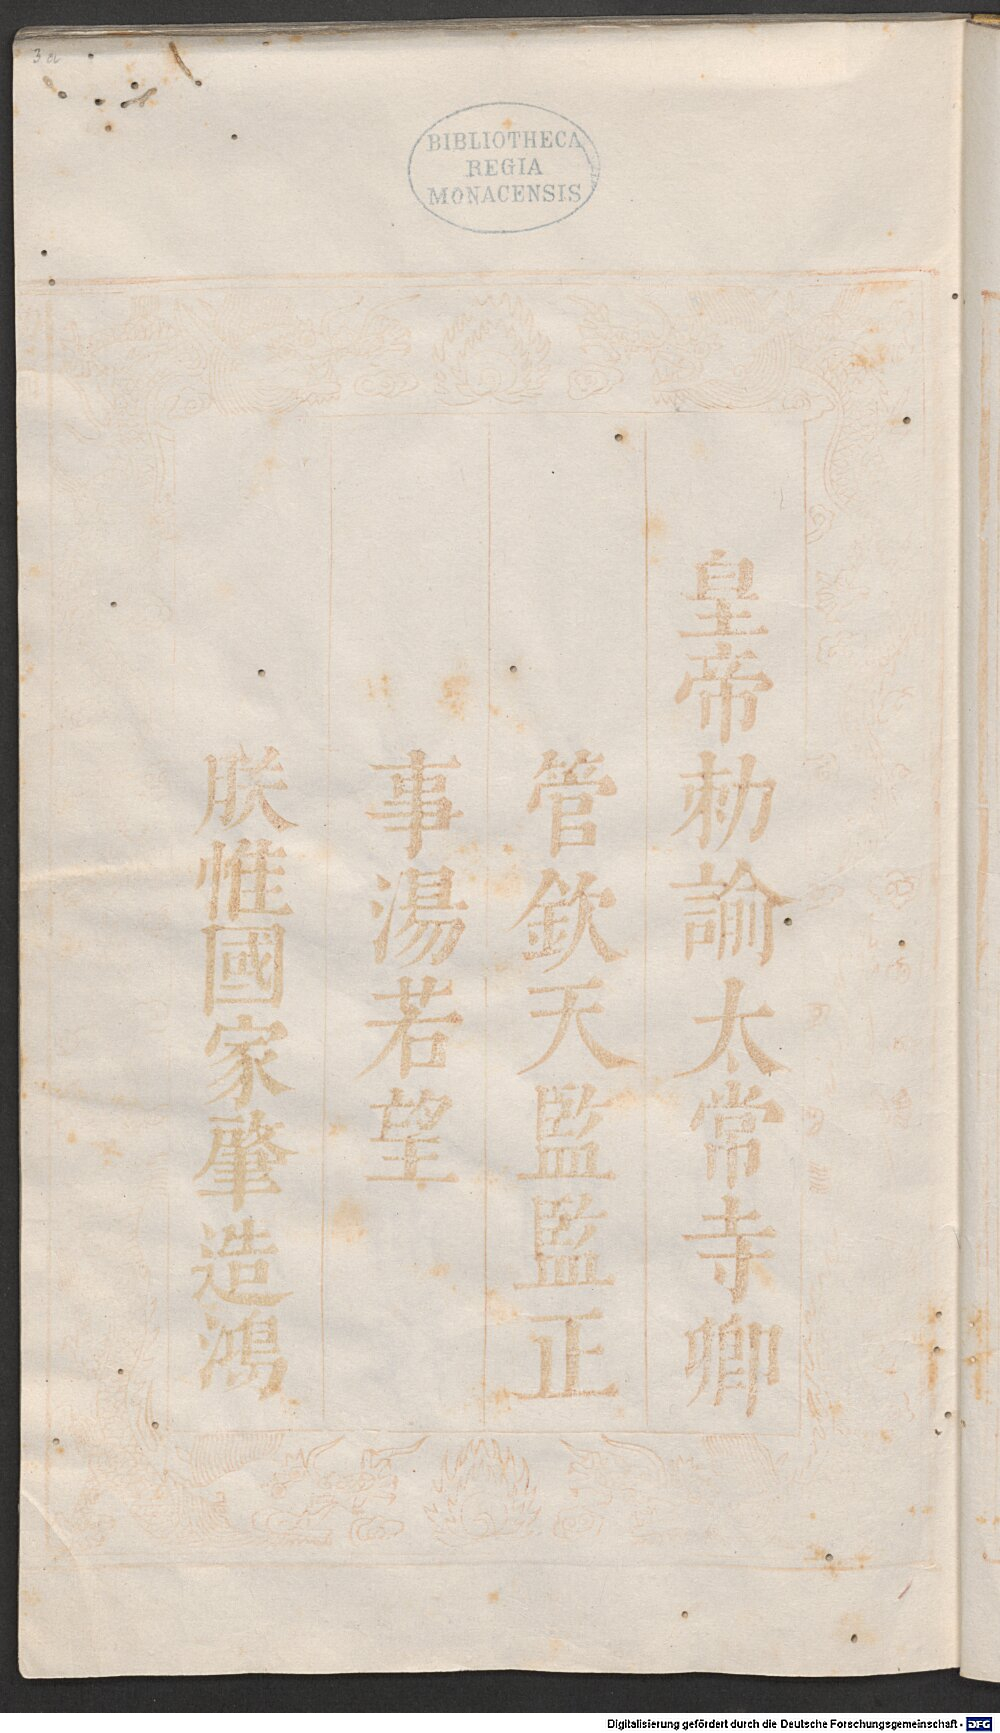 3a
BIBLIOTHECA
REGIA
MONACENSIS
皇帝勅諭太常寺卿
管欽天監監正
事湯若望
朕惟國家肇造鴻
Digitalisierung gefördert durch die Deutsche Forschungsgemeinschaft - DFG